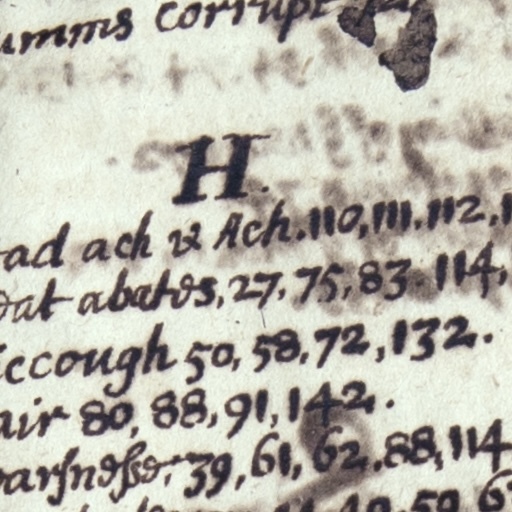 umms corrupt
H.
ad ach & Ach. 110, 111. 112, 1
at abates, 27, 75, 83. 114,
iccough 50, 58, 72, 132.
air 80, 88, 91, 142.
oarſneſse, 39, 61, 62. 88, 114
49, 59, 6